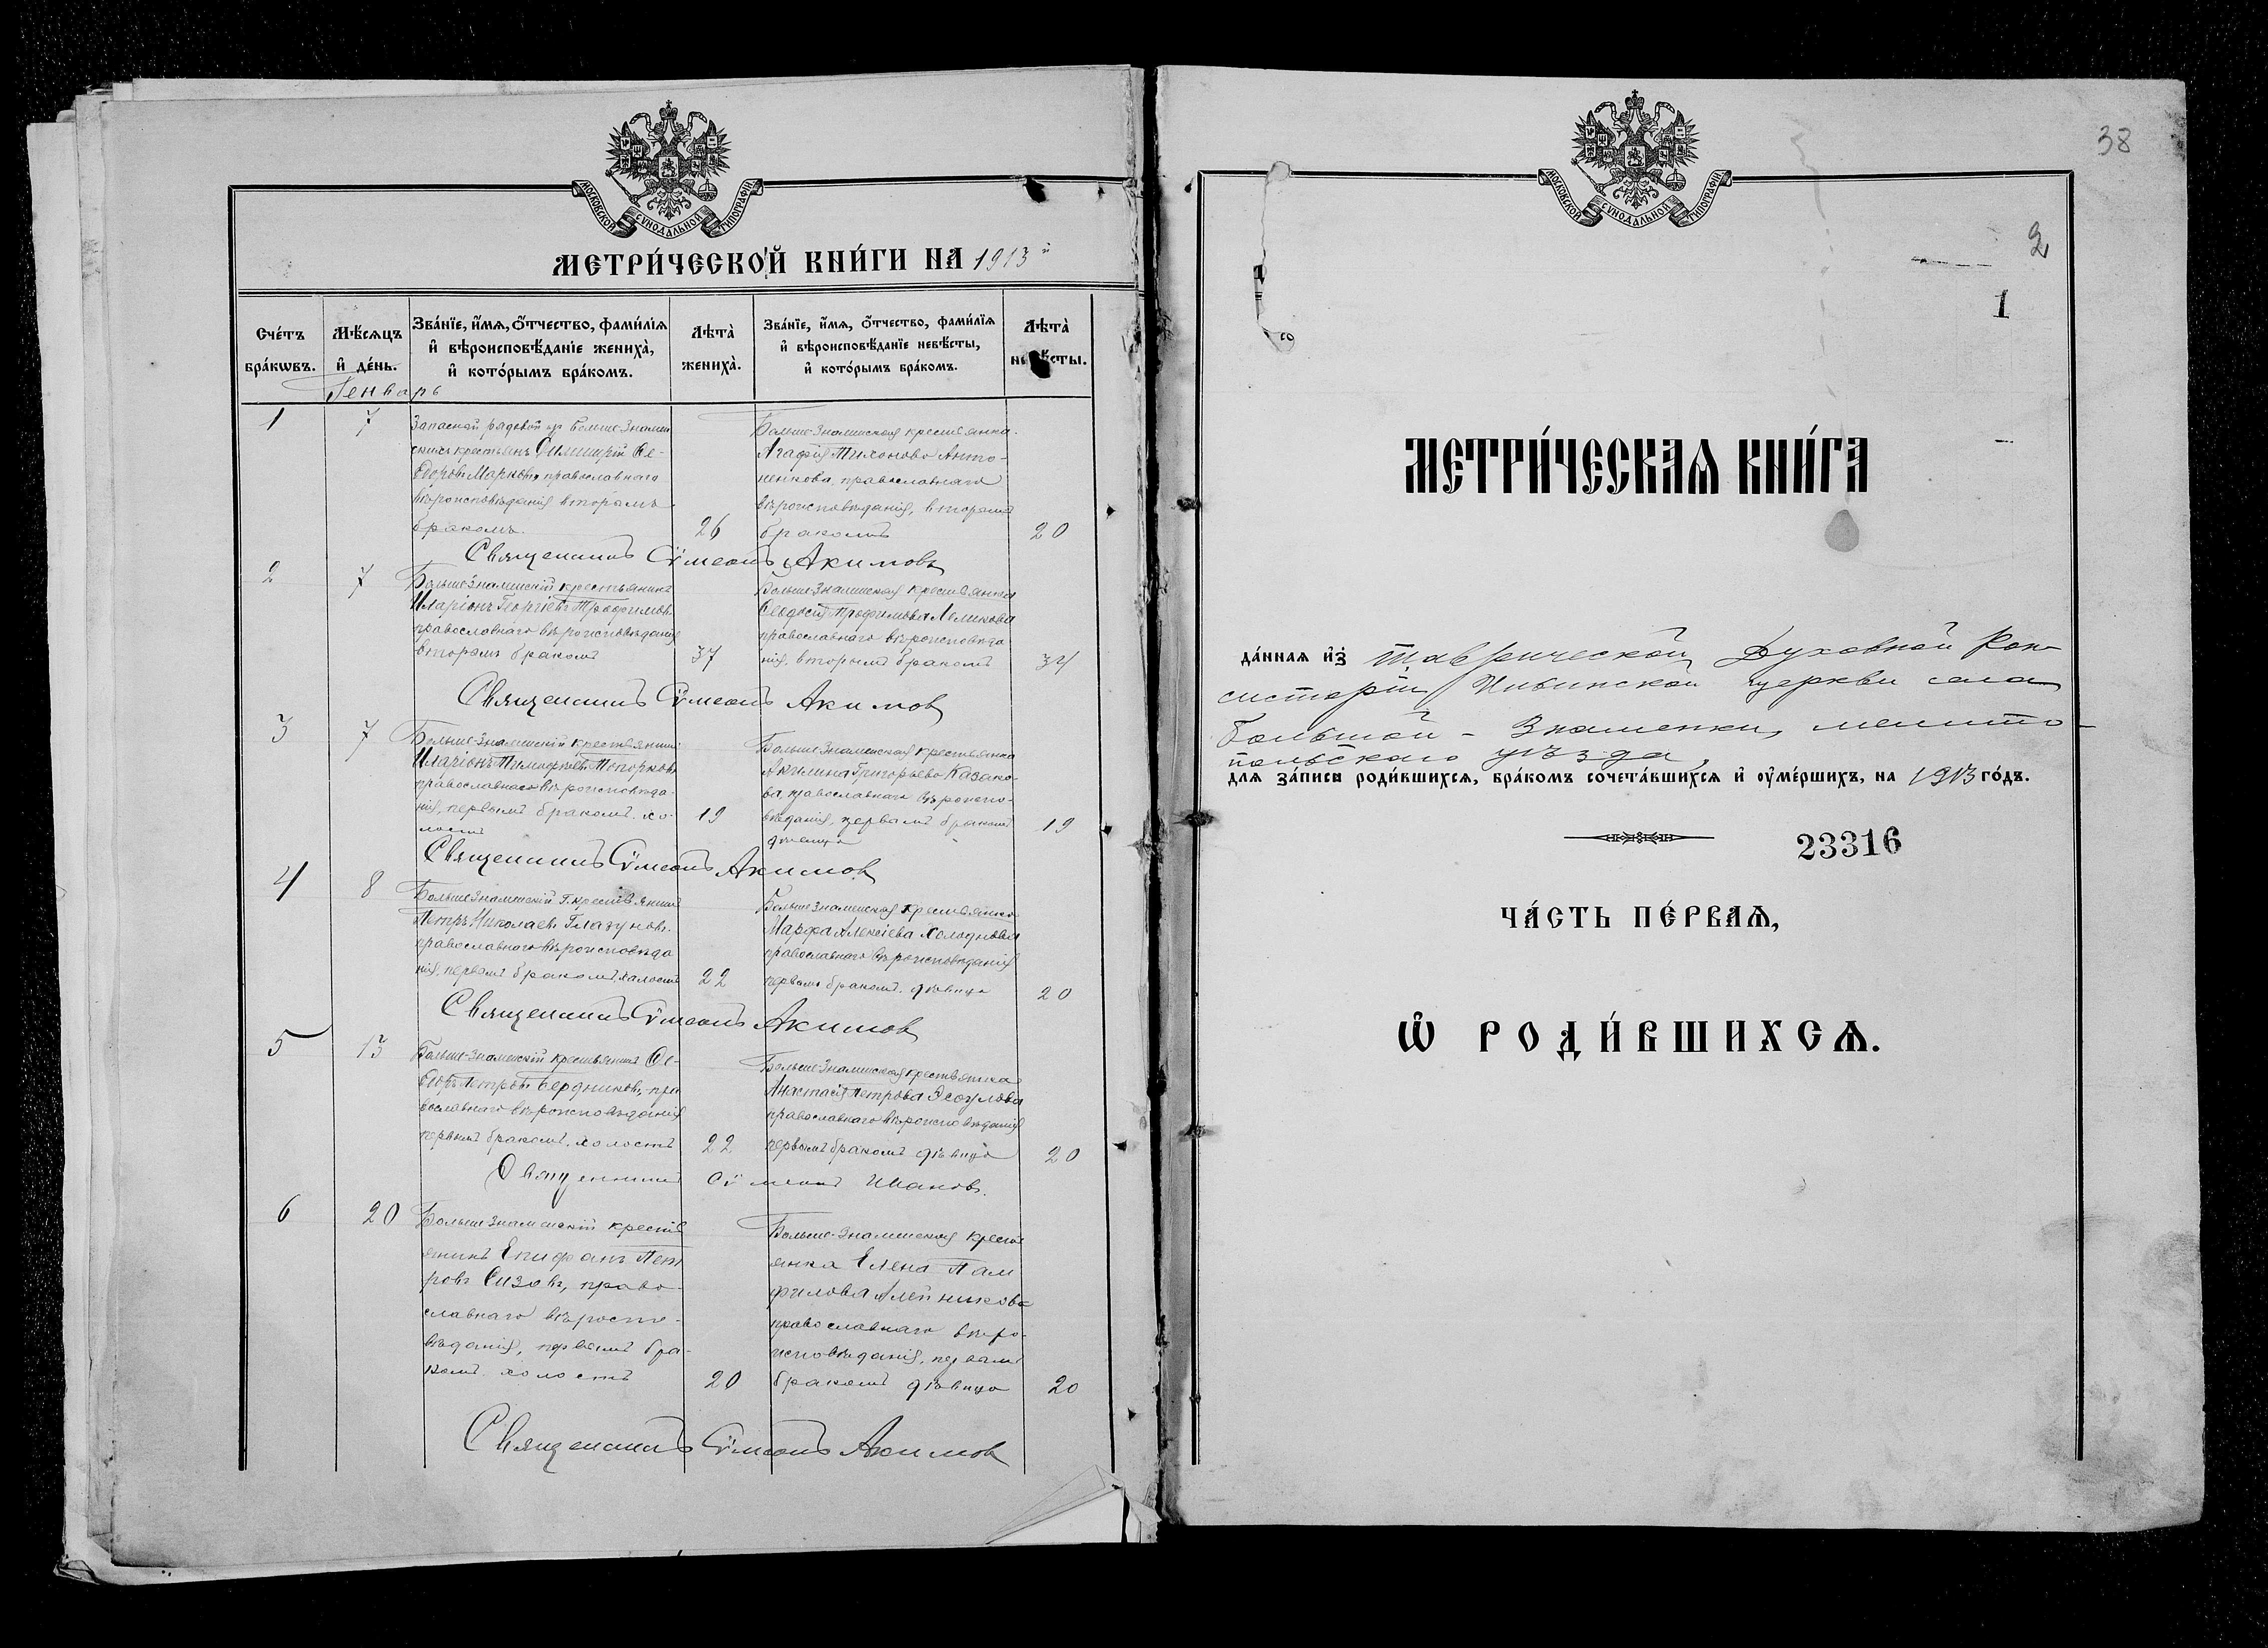 МОСКОВСКОЙ СѴНОДАЛЬНОЙ ТИПОГРАФІИ
МЕТРИ́ЧЕСКОЙ КНИ́ГИ НА 1913й
Сче́тъ бра́кѡвъ.
Мѣ́сяцъ и҆ де́нь.
Зва́нїе, и҆́мѧ, ѻ҆́тчество, фами́лїѧ и҆ вѣроисповѣ́данїе жениха̀, и҆ кото́рымъ бра́комъ.
Лѣта̀ жениха̀.
Зва́нїе, и҆́мѧ, ѻ҆́тчество, фами́лїѧ и҆ вѣроисповѣ́данїе невѣ́сты, и҆ кото́рымъ бра́комъ.
Лѣта̀ невѣ́сты.
Генварь
1
7
Запасной рядовой из больше-знамен
скихъ крестьянъ Димитрій Ѳе-
одоровъ Марковъ православнаго
вѣроисповѣданія вторымъ
бракомъ.
26
Больше-Знаменская крестьянка
Агафія Тихонова Анто-
ненкова, православнаго
вѣроисповѣданія, вторымъ
бракомъ
20
Священникъ Сѵмеонъ Акимовъ
2
7
Больше-Знаменскій крестьянинъ
Иларіонъ Георгіевъ Трофимовъ
православнаго вѣроисповѣданія
вторымъ бракомъ
37
Больше-Знаменская крестьянка
Ѳеодосія Трофимова
православнаго вѣроисповѣда
нія, вторымъ бракомъ
34
Священникъ Сѵмеонъ Акимовъ
3
7
Больше-Знаменскій крестьянинъ
Иларіонъ Тимофеевъ Топорковъ
православнаго вѣроисповѣда-
нія, первымъ бракомъ, хо-
лостъ
19
Больше Знаменская крестьянка
Акилина Григорьева Казако-
ва, православнаго вѣроиспо-
вѣданія, первымъ бракомъ
дѣвица
19
Священникъ Сѵмеонъ Акимовъ
4
8
Больше-Знаменскій крестьянинъ
Петръ Николаевъ Глазуновъ
православнаго вѣроисповѣда
нія, первымъ бракомъ, холостъ
22
Больше-Знаменская крестьянка
Марфа Алексіева Холоднова
православнаго вѣроисповѣданія
первымъ бракомъ, дѣвица
20
Священникъ Сѵмеонъ Акимовъ
5
13
Больше-Знаменскій крестьянинъ Ѳе-
одоръ Петровъ Бердниковъ, пра
вославнаго вѣроисповѣданія
первымъ бракомъ, холостъ
22
Больше-Знаменская крестьянка
Анастасія Петрова Эсаулова
православнаго вѣроисповѣданія
первымъ бракомъ дѣвица
20
Священникъ Сѵмеонъ
6
20
Больше-Знаменскій кресть
янинъ Епифанъ Пет
ровъ Сизовъ, право-
славнаго вѣроиспо-
вѣданія, первымъ бра-
комъ холостъ
20
Больше-Знаменская кресть
янка Елена Пам
филова Алейникова
православнаго вѣро-
исповѣданія, первымъ
бракомъ дѣвица
20
Священникъ Сѵмеонъ Акимовъ
38
МОСКОВСКОЙ СѴНОДАЛЬНОЙ ТИПОГРАФІИ
2
1
МЕТРИ́ЧЕСКАѦ КНИ́ГА
да́нная и҆з̾ Таврической Духовной Кон-
систоріи церкви села
Большой-Знаменки, мелито-
польскаго уѣзда,
для за́писи роди́вшихся, бра́комъ сочета́вшихся и҆ ᲂу҆ме́ршихъ, на 1913 го́дъ.
23316
ЧА́СТЬ ПЕ́РВАѦ,
Ѽ РОДИ́ВШИХСѦ.